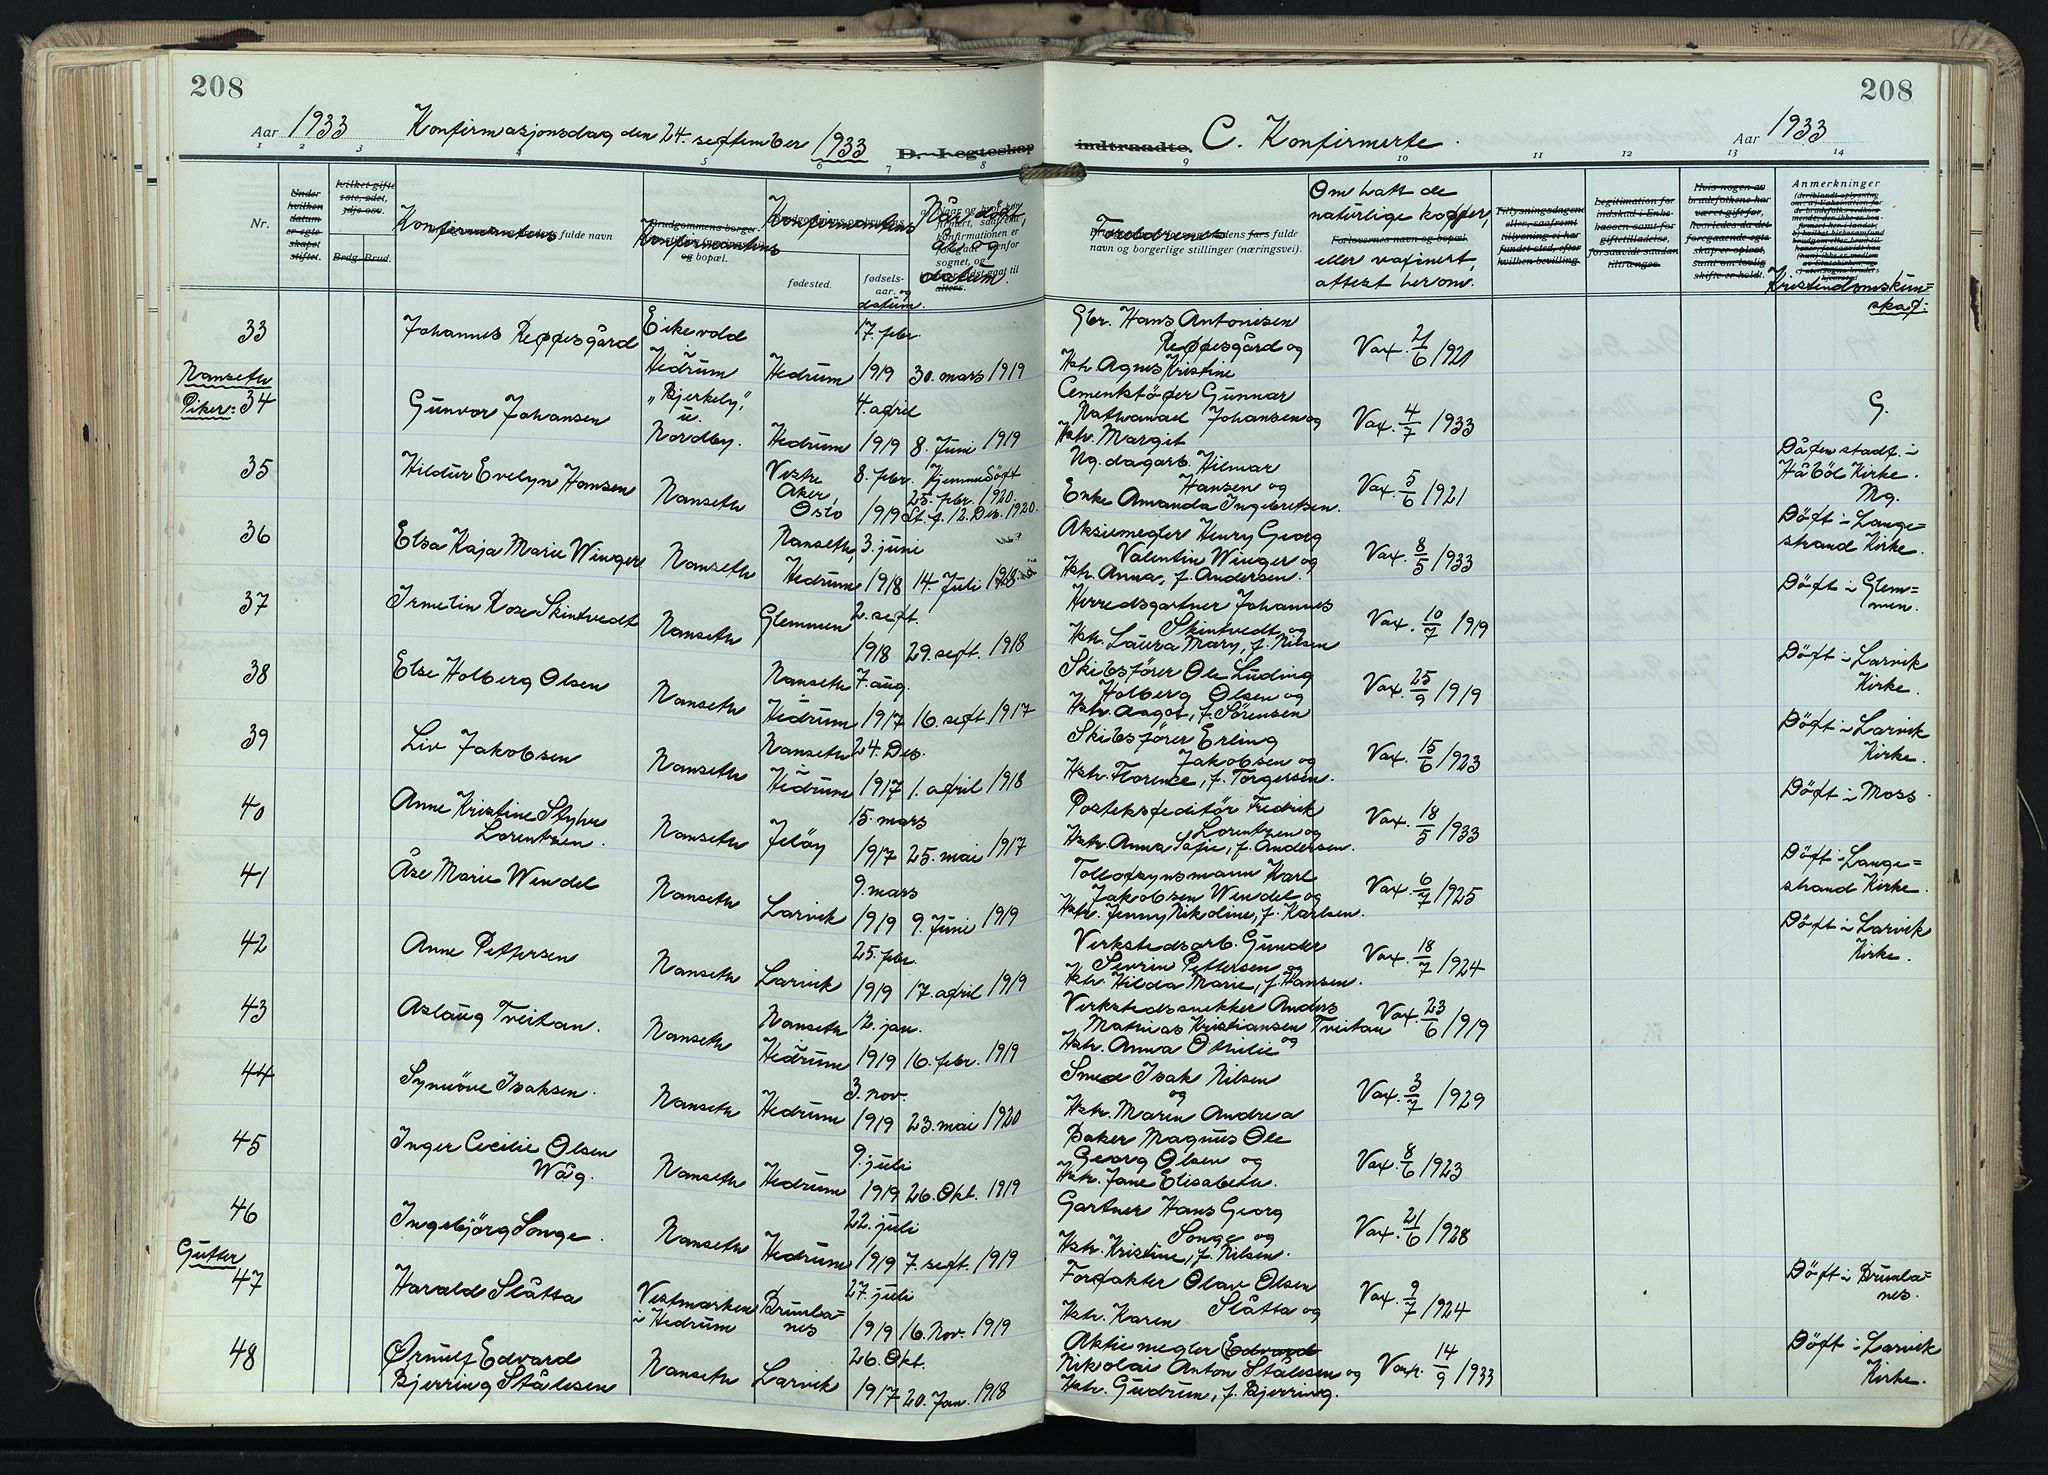 208
Aar 1933 Konfirmasjonsdag den 24. september 1933 D. Egteskap
1 2 3 4 5 6 7 8
Nr.
Under hvilken datum er egteskapet stiftet.
Brdg. Brud.
Konfirmantens fulde navn
Konfirmantens og bopæl.
Konfirmantens
fødested.
fødselsaar. og datum.
Når døpt, og datum.
33 Johannes Reppesgård Eikevold Hedrum Hedrum 17 febr. 1919 30. mars 1919
Nanseth
Piker: 34 Gunvor Johansen "Bjerkely," u. Nordby. Hedrum 4. april 1919 8. Juni 1919
35 Hildur Evelyn Hansen Nanseth Vestre Aker, Oslo 8. febr. 1919 Hjemmedöpt 25. febr. 1920. St. f. 12. Des. 1920.
36 Elsa Kaja Marie Winger Nanseth Nanseth, Hedrum 3. juni 1918 14. Juli 1918
37 Irmelin Rose Skintvedt Nanseth Glemmen 2. sept. 1918 29. sept. 1918
38 Else Holberg Olsen Nanseth Nanseth Hedrum 7. aug. 1917 16. sept 1917
39 Liv Jakobsen Nanseth Nanseth Hedrum 24. Des. 1917 1. april 1918
40 Anne Kristine Styhr Lorentzen. Nanseth Jelöy 15. mars 1917 25. mai 1917
41 Åse Marie Wendel Nanseth Larvik 9. mars 1919 9. Juni 1919
42 Anne Pettersen Nanseth Larvik 25. febr. 1919 17. april 1919
43 Aslaug Treitan. Nanseth Nanseth Hedrum 12. jan. 1919 16. febr. 1919
44 Synnöve Isaksen. Nanseth Hedrum 3. nov. 1919 23. mai 1920
45 Inger Cecilie Olsen Wåg. Nanseth Hedrum 9. juli 1919 26. Okt. 1919
46 Ingebjörg Songe. Nanseth Hedrum 22. juli 1919 7. sept. 1919
Gutter
47 Harald Slåtta Vestmarken i Hedrum Brunlanes 27. juli 1919 16. Nov. 1919
48 Ørnulf Edvard Bjerring Stålesen Nanseth Larvik 26. Okt. 1917 20. Jan. 1918
208
indtraadte. C. Konfirmerte. Aar 1933
9 10 11 12 13 14
Foreldrenes fulde
navn og borgerlige stillinger (næringsvei).
Om hatt de naturlige kopper, eller vaxinert, attest herom.
Forlovernes navn og bopæl
Tillysningsdagene eller, saafremt tillysning ei har fundet sted, efter hvilken bevilling.
Legitimation for indskud i Enkekassen samt for giftetilladelse, forsaavidt saadan tiltrænges.
Hvis nogen av brudefolkene har været gift før, hvorledes da det foregaaende egteskap er opløst samt om lovlig skifte er holdt.
Anmerkninger
Kristendomskunskap:
Gbr. Hans Antonisen Reppesgård og Hstr. Agnes Kristine Vax. 21/6 1921
Cementstøper Gunnar Nathanael Johansen og Hstr. Margit Vax. 4/7 1933 G.
Ng. dagarb. Hilmar Hansen og Enke Amanda Ingebretsen. Vax. 5/6 1921 Dåpen stadf. i Håböl Kirke. Ng.
Aksiemegler Henry Georg Valentin Winger og Hstr. Anna, f. Andersen. Vax. 8/5 1933 Döpt i Langestrand Kirke.
Herredsgartner Johannes Skintvedt og Hstr. Laura Mary, f. Nilsen Vax. 10/7 1919 Döpt i Glemmen.
Skibsförer Ole Ludvig Holberg Olsen og Hstr. Aagot, f. Sörensen Vax. 25/9 1919 Döpt i Larvik Kirke.
Skibsförer Erling Jakobsen og Hstr. Florence, f. Torgersen. Vax. 15/6 1923 Döpt i Larvik Kirke.
Postekspeditör Fredrik Lorentzen og Hstr. Anna Sofie, f. Andersen. Vax. 18/5 1933 Döpt i Moss.
Tollopsynsmann Karl Jakobsen Wendel og Hstr. Jenny Nikoline, f. Karlsen. Vax. 6/7 1925 Döpt i Langestrand Kirke.
Verkstedsarb. Gunder Sevrin Pettersen og Hstr. Hilda Marie, f. Hansen. Vax. 18/7 1924 Döpt i Larvik Kirke.
Verkstedssnekker Anders Mathias Kristiansen Treitan og Hstr. Anna Othilie Vax. 23/6 1919
Smed Isak Nilsen og Hstr. Maren Andrea Vax. 3/7 1929
Baker Magnus Ole Georg Olsen og Hstr. Jane Elisabeth. Vax. 8/6 1923
Gartner Hans Georg Songe og Hstr. Kristine, f. Nilsen. Vax. 21/6 1928
Forpakter Olav Olsen Slåtta og Hstr. Karen Vax. 9/7 1924 Döpt i Brunlanes.
Aktiemegler Edvard Nikolai Anton Stålesen og Hstr. Gudrun, f. Bjerring. Vax. 14/9 1933 Döpt i Larvik Kirke.